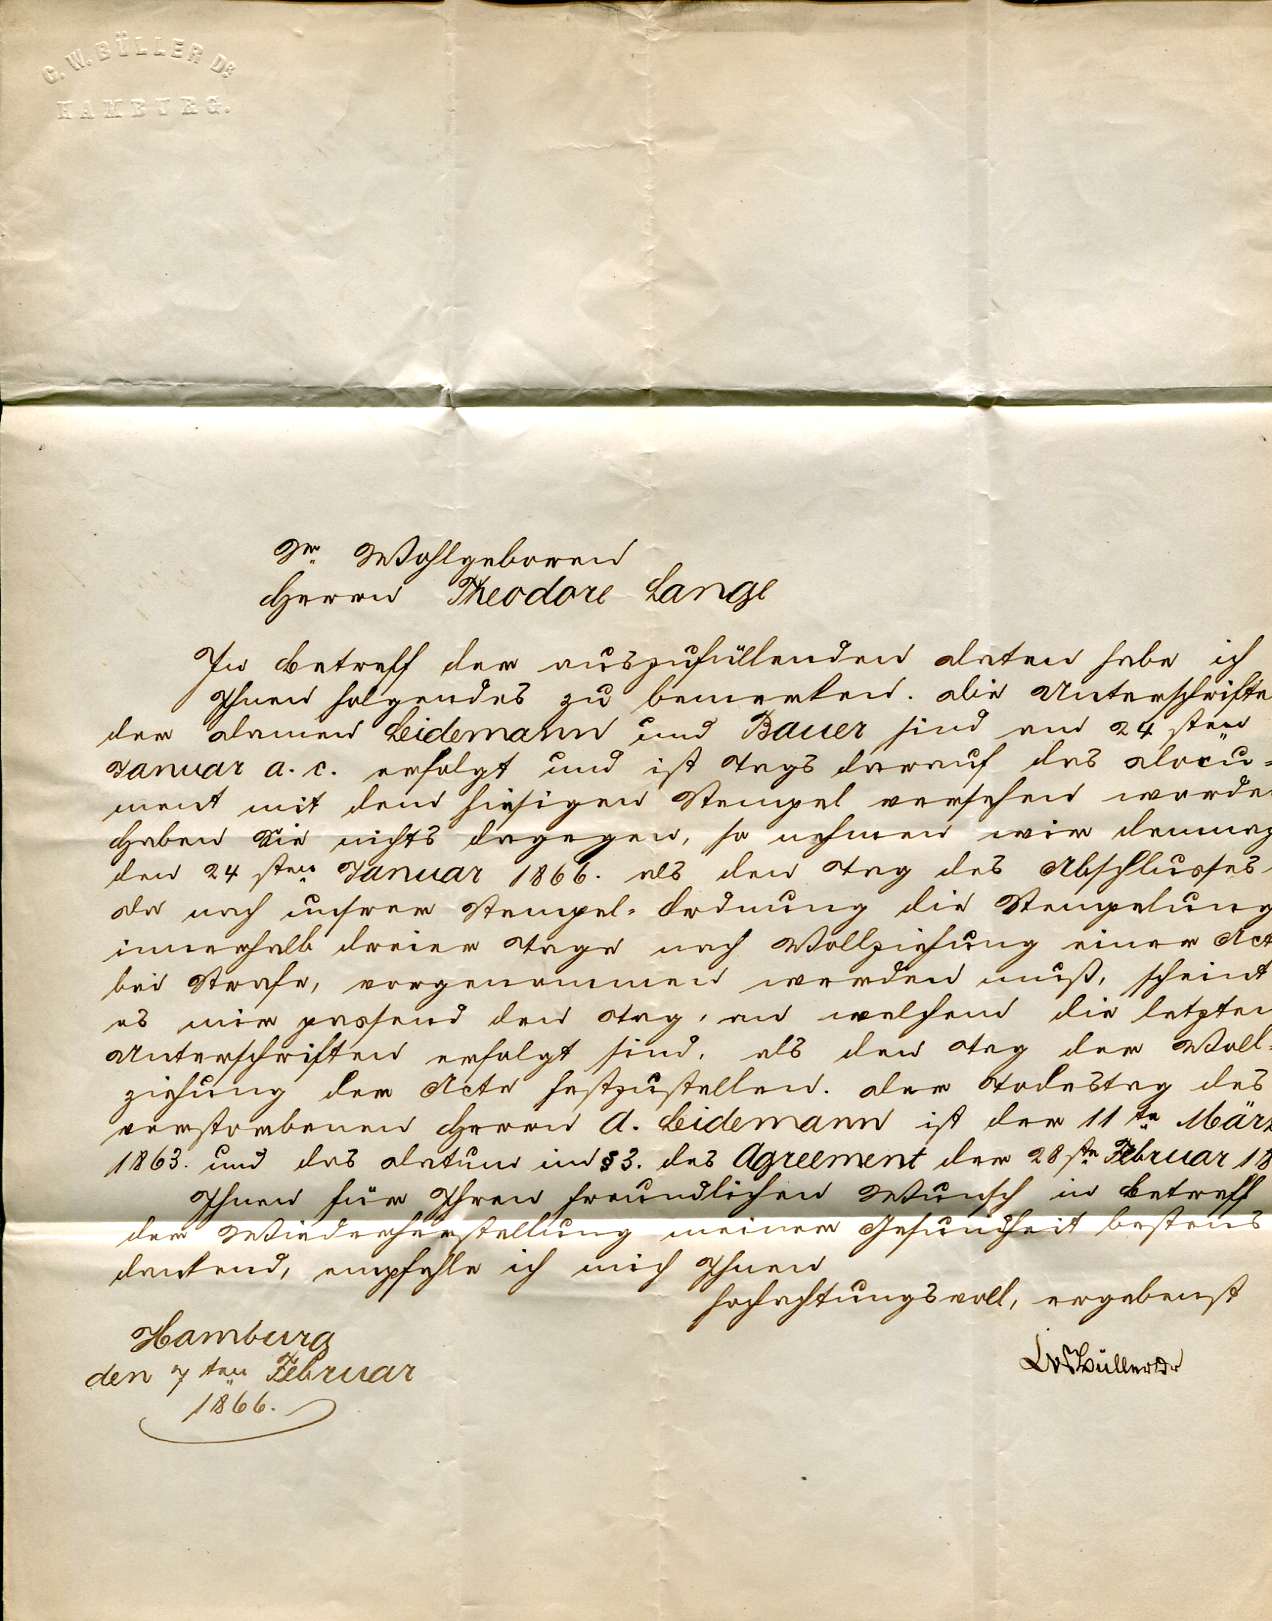 G. W. BÜLLER DR
HAMBURG.
Sr Wohlgeboren
Herrn Theodore Lange
In Betreff der auszufüllenden Daten habe ich
Ihnen folgendes zu bemerken. Die Unterschrifte
der Damen Leidemann und Bauer sind am 24 sten
Januar a. c. erfolgt und ist Tags darauf das Docu=
ment mit dem hiesigen Stempel versehen worde
Haben Sie nichts dagegen, so nehmen wir demnac
den 24 sten Januar 1866. als den Tag des Abschlusses.
Da nach unsrer Stempel= Ordnung die Stempelung
innerhalb dreier Tage nach Vollziehung einer Act
bei Strafe, vorgenommen werden muß, scheint
es mir passend den Tag, an welchem die letzten
Unterschriften erfolgt sind, als den Tag der Voll=
ziehung der Acte festzustellen. Der Todestag des
verstorbenen Herrn A. Leidemann ist der 11 te März
1863. und das Datum im § 3. des Agreement der 28 ste Februar 18
Ihnen für Ihren freundlichen Wunsch in Betreff
der Wiederherstellung meiner Gesundheit bestens
dankend, empfehle ich mich Ihnen
hochachtungsvoll, ergebenst
Hamburg
den 7 ten Februar
1866.
GWBüller Dr